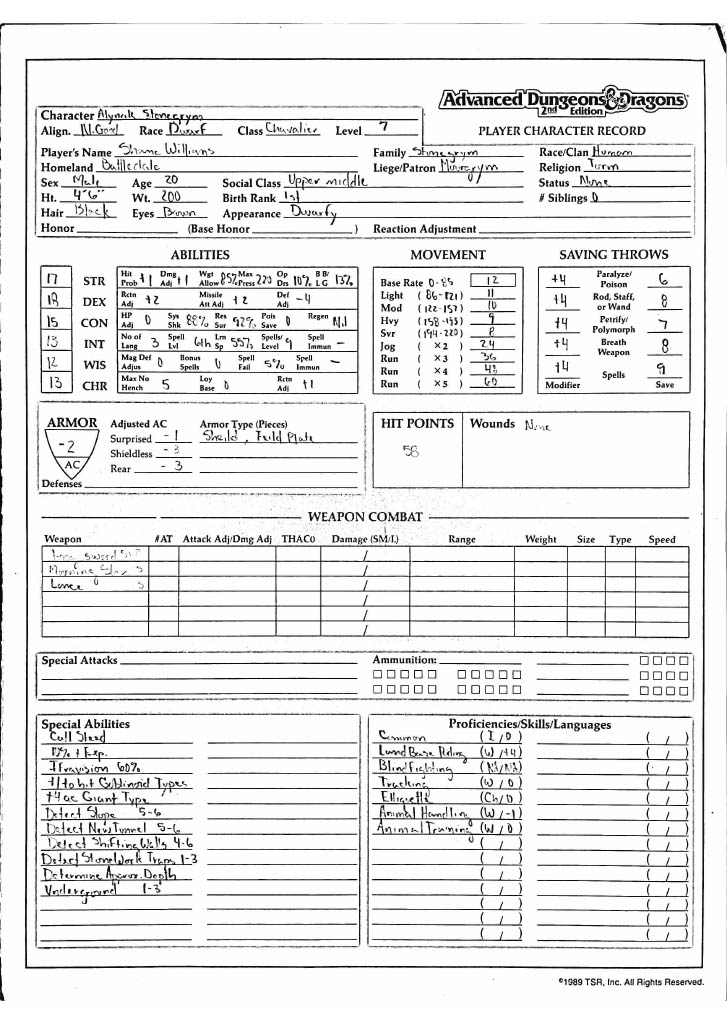 Advanced Dungeons & Dragons
2nd Edition
PLAYER CHARACTER RECORD
Character Alynak Stonegrym
Align. N.Good Race Dwarf Class Chavalier Level 7
Player's Name Shane Williams
Homeland Battledale
Sex Male Age 20 Social Class Upper middle
Ht. 4'6" Wt. 200 Birth Rank 1st
Hair Black Eyes Brown Appearance Dwarfy
Honor (Base Honor )
Family Stonegrym Race/Clan Human
Liege/Patron Mourgrym Religion Torm
Status None
# Siblings 0
Reaction Adjustment
ABILITIES
17 STR Hit Prob +1 Dmg Adj +1 Wgt Allow 85% Max Press 220 Op Drs 10% B B/L G 13%
18 DEX Rctn Adj +2 Missile Att Adj +2 Def Adj -4
15 CON HP Adj 0 Sys Shk 88% Res Sur 92% Pois Save 0 Regen Nil
13 INT No of Lang 3 Spell Lvl 6th Lrn Sp 55% Spells/Level 9 Spell Immun -
12 WIS Mag Def Adjus 0 Bonus Spells 0 Spell Fail 5% Spell Immun -
13 CHR Max No Hench 5 Loy Base 0 Rctn Adj +1
MOVEMENT
Base Rate 0-85 12
Light (86-121) 11
Mod (122-157) 10
Hvy (158-193) 9
Svr (194-220) 8
Jog (×2) 24
Run (×3) 36
Run (×4) 48
Run (×5) 60
SAVING THROWS
+4 Paralyze/Poison 6
+4 Rod, Staff, or Wand 8
+4 Petrify/Polymorph 7
+4 Breath Weapon 8
+4 Spells 9
Modifier Save
ARMOR
-2
AC
Adjusted AC
Surprised -1
Shieldless -3
Rear -3
Armor Type (Pieces)
Sheild, Feild Plate
Defenses
HIT POINTS
58
Wounds None
WEAPON COMBAT
Weapon #AT Attack Adj/Dmg Adj THAC0 Damage (SM/L) Range Weight Size Type Speed
Sword
/
Morning Star 5
/
Lance 5
/
/
/
/
/
Special Attacks
Ammunition:
Special Abilities
Call Steed
10% + Exp.
Ifravision 60%
+1 to hit Goblinoid Types
+4 ac Giant Type
Detect Slope 5-6
Detect New Tunnel 5-6
Detect Shifting Walls 4-6
Detect StoneWork Traps 1-3
Determine Approx. Depth
Underground 1-3
Proficiencies/Skills/Languages
Common (I/0) ( / )
Land Base Riding (W/+4) ( / )
Blind Fighting (NA/NA) ( / )
Tracking (W/0) ( / )
Ettiquette (Ch/0) ( / )
Animal Handling (W/-1) ( / )
Animal Training (W/0) ( / )
( / ) ( / )
( / ) ( / )
( / ) ( / )
( / ) ( / )
( / ) ( / )
( / ) ( / )
( / ) ( / )
©1989 TSR, Inc. All Rights Reserved.